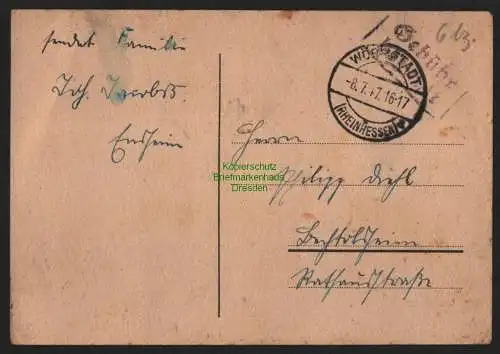 sendet Familie
Joh. Jacobs
Ensheim
6 bz
Gebühr
WÖRRSTADT
-8.7.47.16-17
(RHEINHESSEN)
Kopierschutz
Briefmarkenhaus
Dresden
Herrn
Philipp Diehl
Bechtolsheim
Rathausstraße